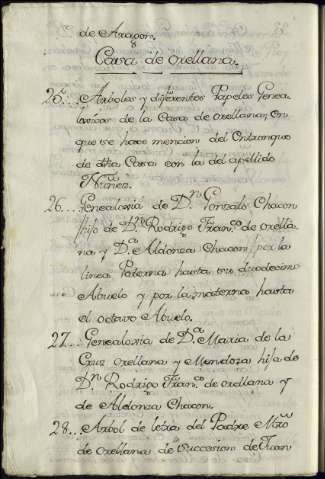 de Aragon.
Casa de Orellana.
25... Arboles y diferentes Papeles Genea-
lovicos de la Casa de Orellana, en
que se hace mencion del Entronque
de dha Casa con la del apellido
Nuñez.
26... Genealoxia de Dn. Gonzalo Chacon
hijo de Dn. Rodrigo Franco. de Orella-
na y Da. Aldonza Chacon, por la
linea Paterna hasta su duodecimo
Abuelo y por la materna hasta
el octavo Abuelo.
27.. Genealoxia de Da. Maria de la
Cruz Orellana y Mendoza hija de
Dn. Rodrigo Franco. de Orellana y
de Aldonza Chacon.
28... Arbol de letra del Padre Mtro
de Orellana de Succesion de Juan